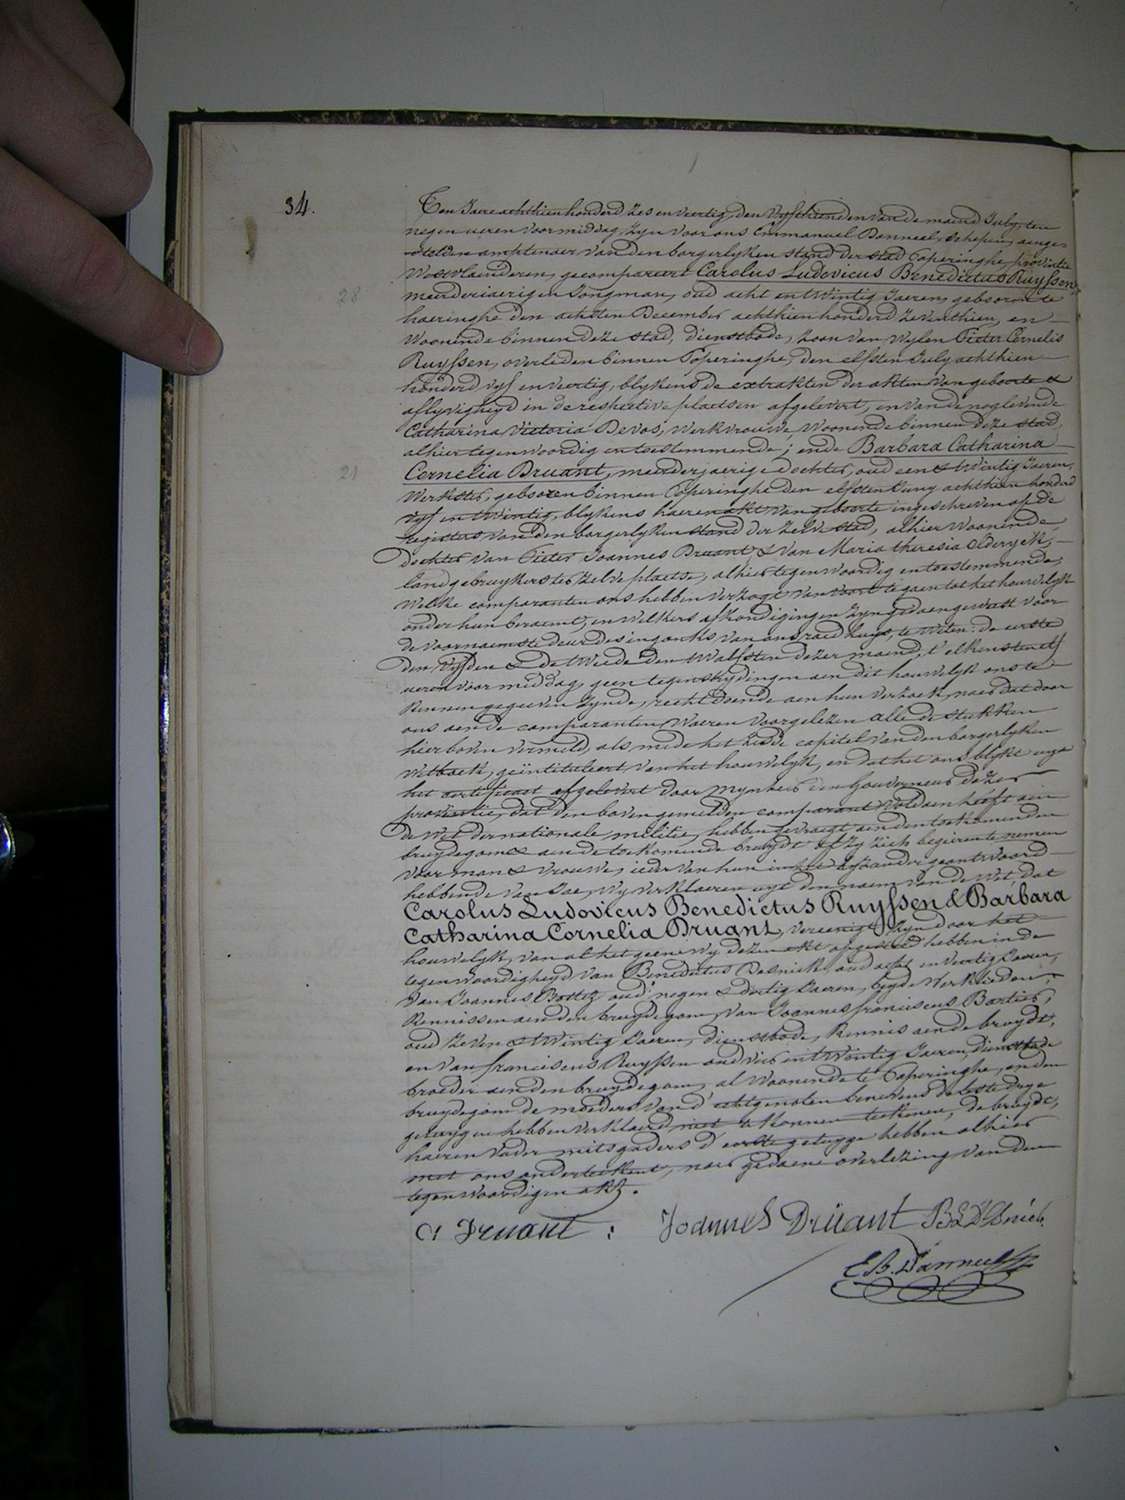 34.
Ten Jaere achthien honderd zes en veertig, den vyfthienden van de maend July, ten
negen ueren voormiddag, zyn voor ons Emmanuel Banneel, schepen, aenge-
stelden amptenaer van den borgerlyken stand der stad Poperinghe, provintie
Westvlaenderen, gecompareert Carolus Ludovicus Benedictus Ruyssen,
28
meerderjaerigen Jongman, oud acht en twintig Jaeren, geboren te
haeringhe den achtsten December achthien honderd zeventhien, en
woonende binnen deze stad, dienstbode, zoon van wylen Pieter Cornelis
Ruyssen, overleden binnen Poperinghe, den elfsten July achthien-
honderd vyf en veertig, blykens de extrakten der akten van geboorte &
aflyvigheyd in de respective plaetsen afgelevert, en van de noglevende
Catharina Victoria Devos, werkvrouwe, woonende binnen deze stad,
alhier tegenwoordig en toestemmende; ende Barbara Catharina
21
Cornelia Druant, meerderjaerige dochter, oud een & twintig Jaeren,
werkster, geboren binnen Poperinghe den elfsten Juny achthien honderd
vyf en twintig, blykens haeren akt van geboorte ingeschreven op de
registers van den borgerlyken stand der zelve stad, alhier woonende,
dochter van Pieter Joannes Druant, & van Maria theresia
landgebruykers ter zelve plaetse, alhier tegenwoordig en toestemmende,
welke comparanten ons hebben verzogt van voort te gaen tot het houwelyk
onder hun beraemt, en welkers afkondigingen zyn gedaen geweest voor
de voornaemste deur des ingancks van ons raedhuys, te weten: de eerste
den vyfden & de tweede den twalfsten dezer maend, t'elkens ten elf
ueren voormiddag, geen tegenstrydingen aen dit houwelyk ons te
kennen gegeven zynde, recht doende aen hun verzoek, naer dat door
ons aen de comparanten waeren voorgelezen alle de stukken
hier boven vermeld, als mede het zesde capitel van den borgerlyken
wetboek, geïntituleert van het houwelyk, en dat het ons blykt uyt
het certificaet afgelevert door mynheer den Gouverneur dezer
provintie, dat den bovengemelden comparant voldaen heeft aen
de wet der nationale militie, hebben gevraegt aen den toekomenden
bruydegom & aen de toekomende bruydt of zy zich begeeren te nemen
voor man & vrouwe; ieder van hun in het byzonder geantwoord
hebbende van Jae, wy verklaeren uyt den naem van de wet, dat
Carolus Ludovicus Benedictus Ruyssen & Barbara
Catharina Cornelia Druant, vereenigt zyn door het
houwelyk, van al het geene wy dezen akt opgesteld hebben in de
tegenwoordigheyd van Benedictus oud acht en veertig Jaeren,
van Joannes oud negen & dertig Jaeren, beyde werklieden,
kennissen aen den bruydegom, van Joannes franciscus Bartier,
oud zeven & twintig Jaeren, dienstbode, kennis aen de bruydt,
en van franciscus Ruyssen oud vier en twintig Jaeren, dienstbode
broeder aen den bruydegom, al woonende te Poperinghe, en den
bruydegom de moeders van d'echtgenoten benevens de leste drye
getuygen hebben verklaerd niet te konnen teekenen, de bruydt,
haeren vader mitsgaders d'eerste getuyge hebben alhier
met ons onderteekent, naer gedaene overlezing van den
tegenwoordigen akt.
Druant : Joannes Drüant
E. B. Banneel